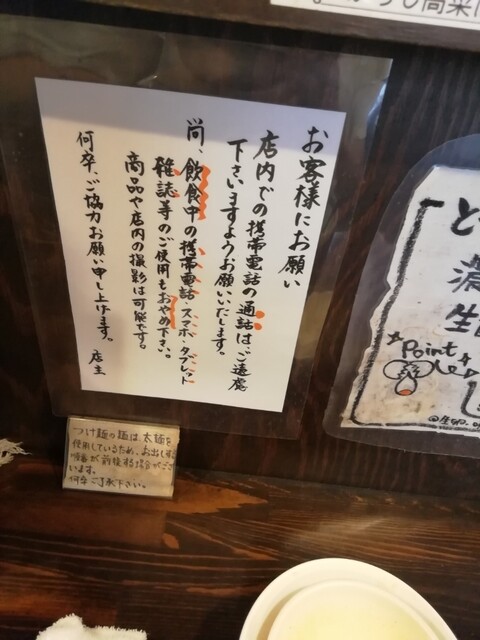 お客様にお願い
店内での携帯電話の通話は、ご遠慮
下さいますようお願いいたします。
尚、飲食中の携帯電話・スマホ・タブレット
雑誌等のご使用もおやめ下さい。
商品や店内の撮影は可能です。
何卒、ご協力お願い申し上げます。
店主
つけ麺の麺は、太麺を
使用しているため、お出しする
順番が前後する場合がござ
います。
何卒ご了承下さい。
と
濃
生
Point